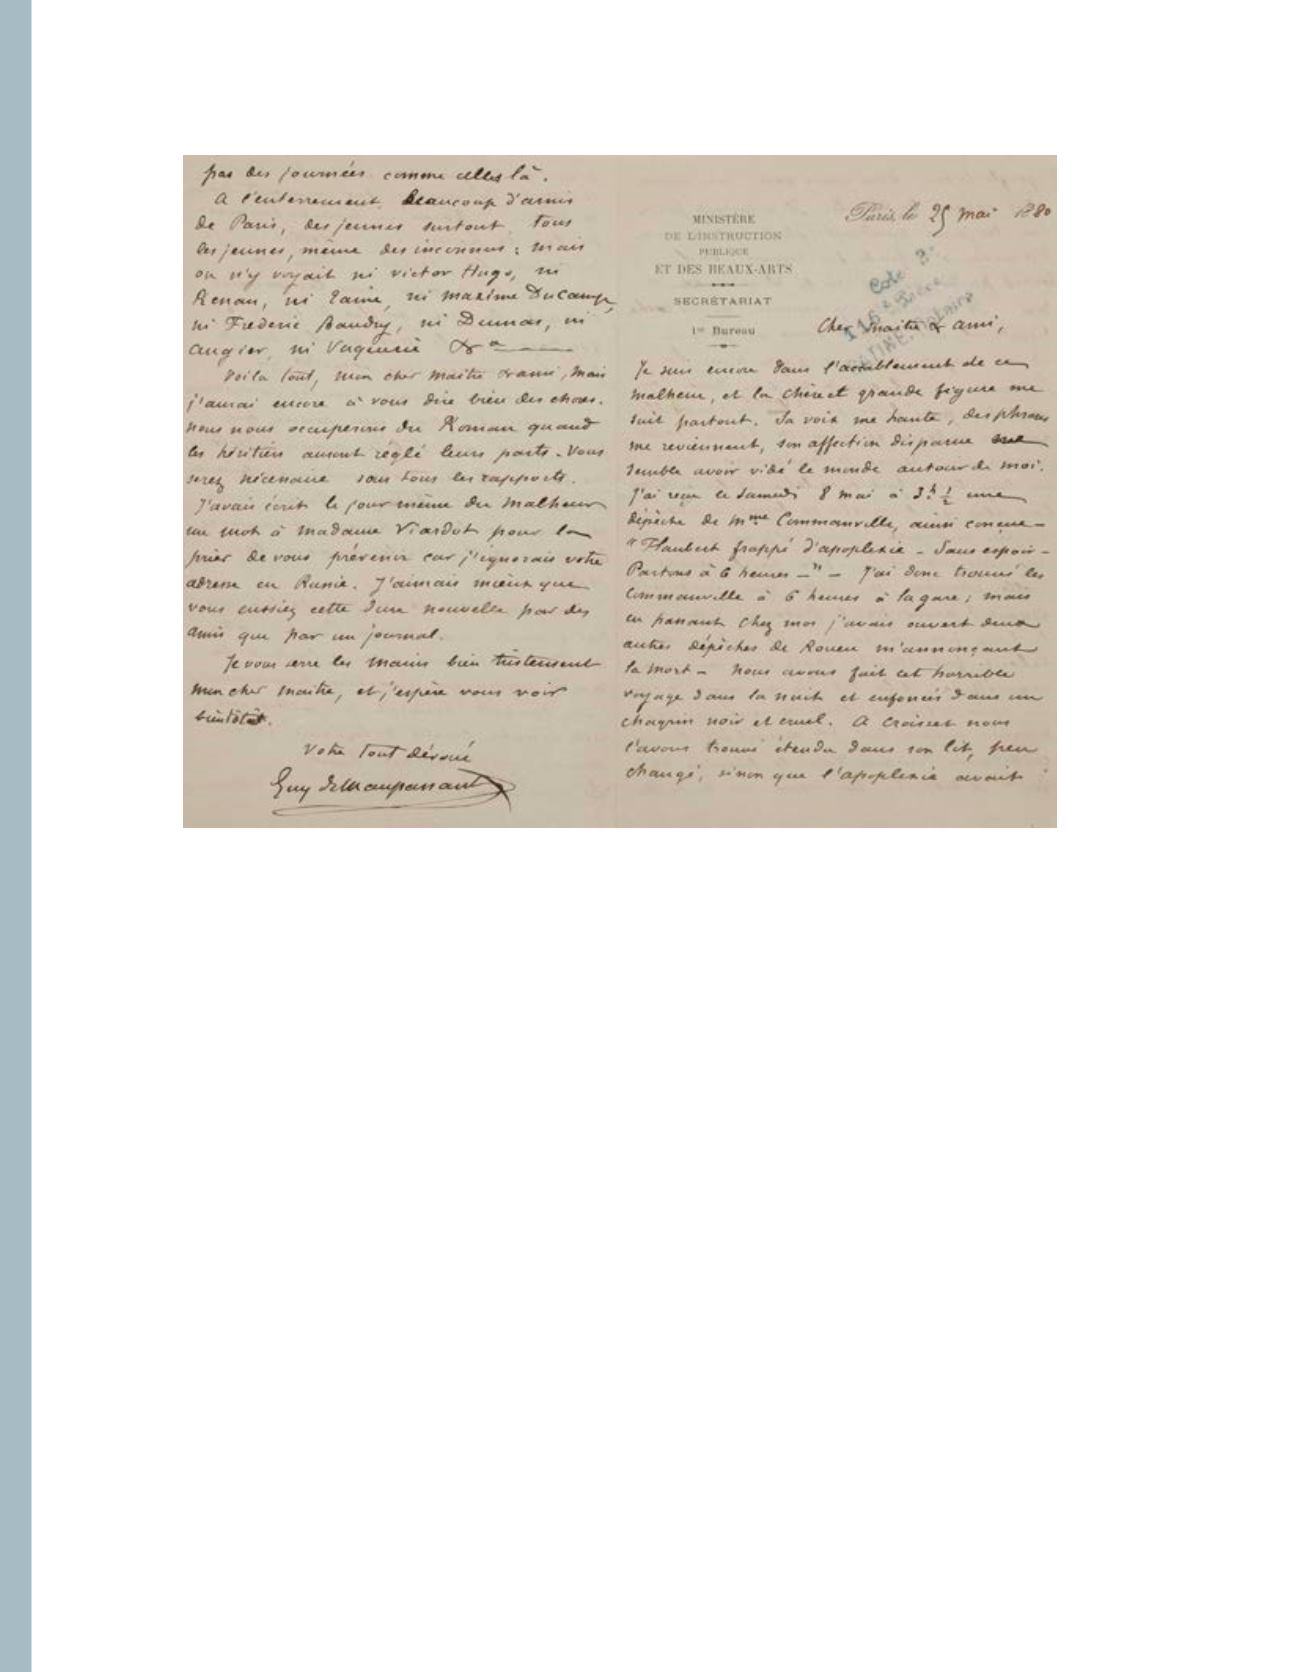 pas des journées comme celles là.
A l'enterrement, beaucoup d'amis
de Paris, des jeunes surtout, tous
les jeunes, même des inconnus ; mais
on n'y voyait ni Victor Hugo, ni
Renan, ni Taine, ni Maxime DuCamp,
ni Frederic Baudry, ni Dumas, ni
Augier, ni Vaquerie &a
Voila tout, mon cher maitre & ami, mais
j'aurai encore à vous dire bien des choses.
nous nous occuperons du Roman quand
les héritiers auront réglé leurs parts. Vous
serez nécessaire sous tous les rapports.
J'avais écrit le jour même du malheur
un mot à madame Viardot pour la
prier de vous prévenir car j'ignorais votre
adresse en Russie. J'aimais mieux que
vous eussiez cette dure nouvelle par des
amis que par un journal.
Je vous serre les mains bien tristement
mon cher maitre, et j'espère vous voir
bientôt.
Votre tout dévoué
Guy de Maupassant
MINISTÈRE
DE L'INSTRUCTION
PUBLIQUE
ET DES BEAUX-ARTS
SECRÉTARIAT
1er Bureau
Paris, le 25 mai 1880
Cote 3e
116e Pièce
Cher maitre & ami,
Je suis encore dans l'accablement de ce
malheur, et la chère et grande figure me
suit partout. Sa voix me hante, des phrases
me reviennent, son affection disparue me
semble avoir vidé le monde autour de moi.
J'ai reçu le Samedi 8 mai à 3h ½ une
dépèche de Mme Commanville, ainsi conçue –
"Flaubert frappé d'apoplexie – Sans espoir –
Partons à 6 heures –" – J'ai donc trouvé les
Commanville à 6 heures à la gare ; mais
en passant chez moi j'avais ouvert deux
autres dépèches de Rouen m'annonçant
la mort – Nous avons fait cet horrible
voyage dans la nuit et enfoncés dans un
chagrin noir et cruel. A Croisset nous
l'avons trouvé étendu dans son lit, peu
changé, sinon que l'apoplexie avait